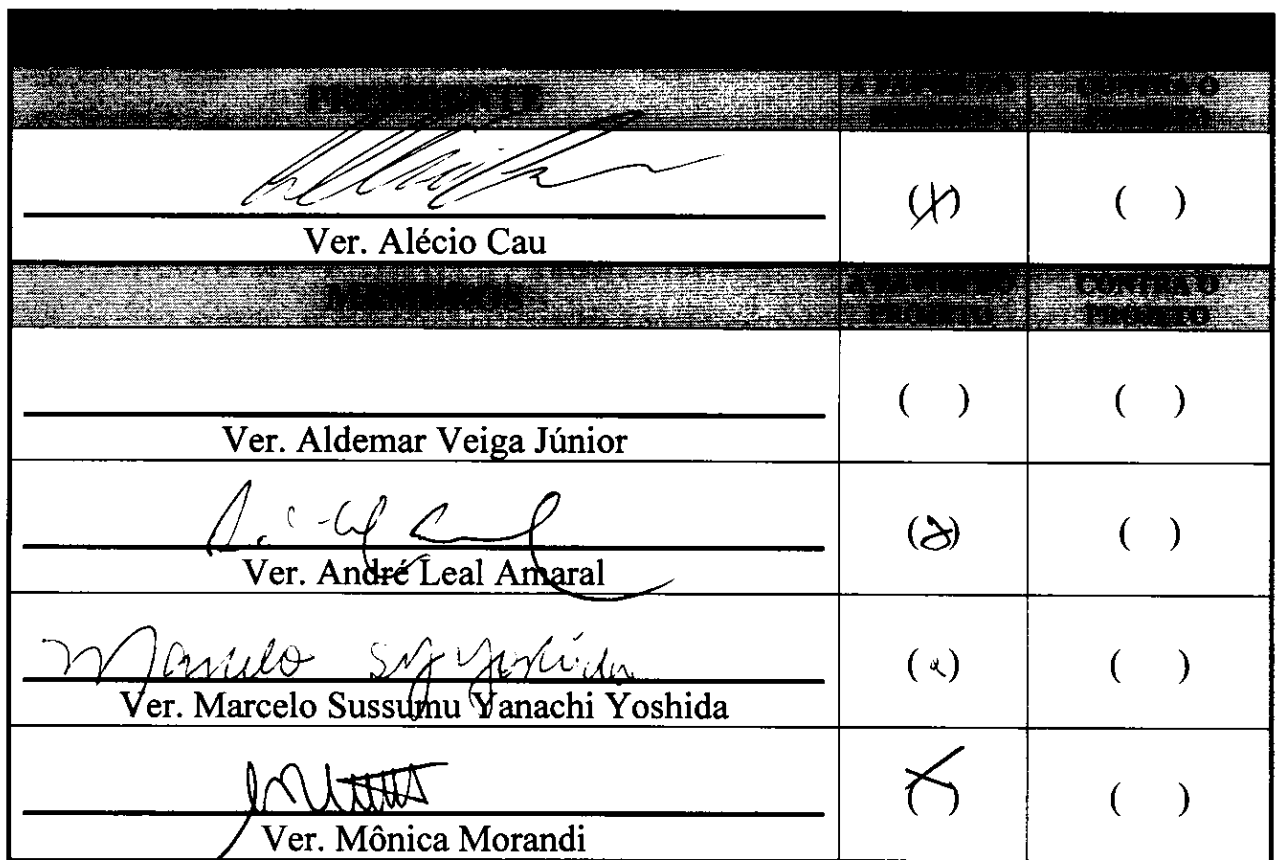 PRESIDENTE A FAVOR DO PROJETO CONTRA O PROJETO
(X) ( )
Ver. Alécio Cau
MEMBROS A FAVOR DO PROJETO CONTRA O PROJETO
( ) ( )
Ver. Aldemar Veiga Júnior
(X) ( )
Ver. André Leal Amaral
Marcelo Yoshida (x) ( )
Ver. Marcelo Sussumu Yanachi Yoshida
(X) ( )
Ver. Mônica Morandi